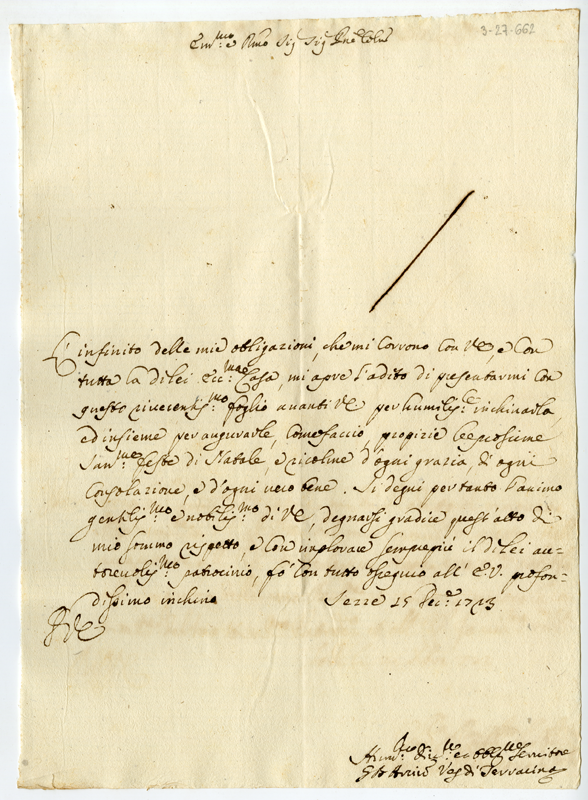 3-27-662
Em.mo e Rmo Sig Sig Pne
L'infinito delle mie obligazioni, che mi corrono con VE, e con
tutta la di lei Ecc.ma Casa mi apre l'adito di presentarmi con
questo riverentis.mo foglio avanti VE per humilis.te inchinarla,
ed insieme per augurarle, come faccio, propizie le prossime
San.me Feste di Natale, e ricolme d'ogni grazia, d'ogni
consolazione, e d'ogni vero bene. Si degni per tanto l'animo
gentilis.mo e nobilis.mo di VE, degnarsi gradire quest'atto di
mio sommo rispetto, e con implorare sempre più il di lei au-
torevolis.mo patrocinio, fo con tutto ossequio all'E.V. profon-
dissimo inchino Sezze 15 Dec.e 1713
VE
Hum.mo ed obblig.mo Servitore
Ves di Terracina